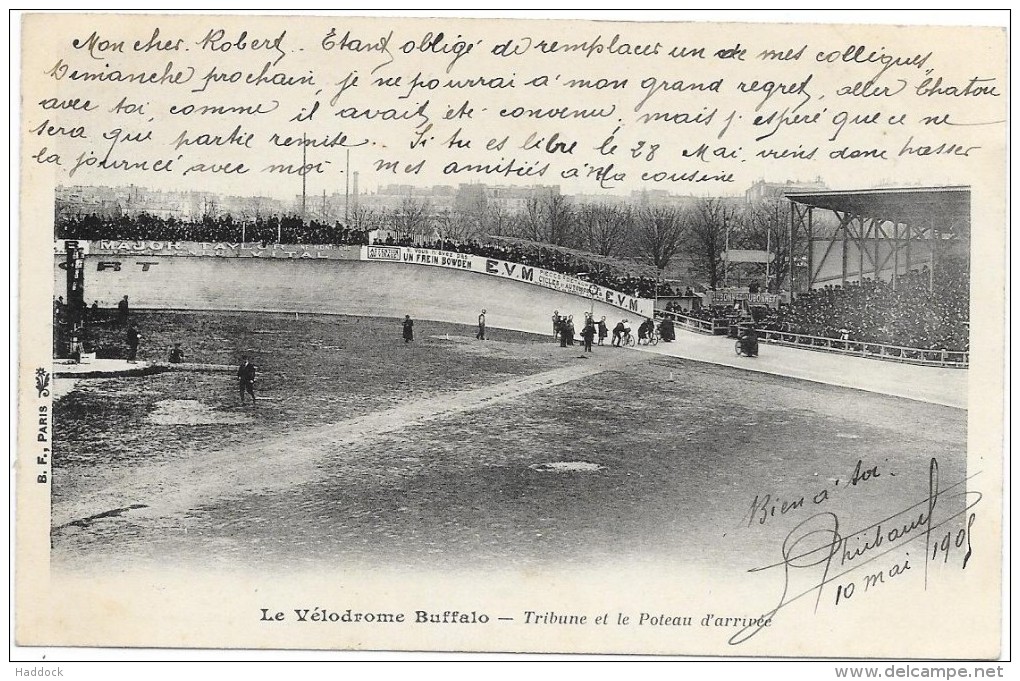 Mon cher Robert. Étant obligé de remplacer un de mes collègues,
Dimanche prochain, je ne pourrai à mon grand regret, aller Chatou
avec toi, comme il avait été convenu, mais j'espére que ce ne
sera que partie remise. Si tu es libre le 28 Mai, viens donc passer
la journée avec moi. Mes amitiés à Ma cousine
MAJOR TAYLOR
VITAL
UN FREIN BOWDEN
E.V.M
CYCLES
E.V.M
B. F., PARIS
Bien à toi.
Thiebaud
10 mai 1905
Le Vélodrome Buffalo — Tribune et le Poteau d'arrivée
Haddock
www.delcampe.net